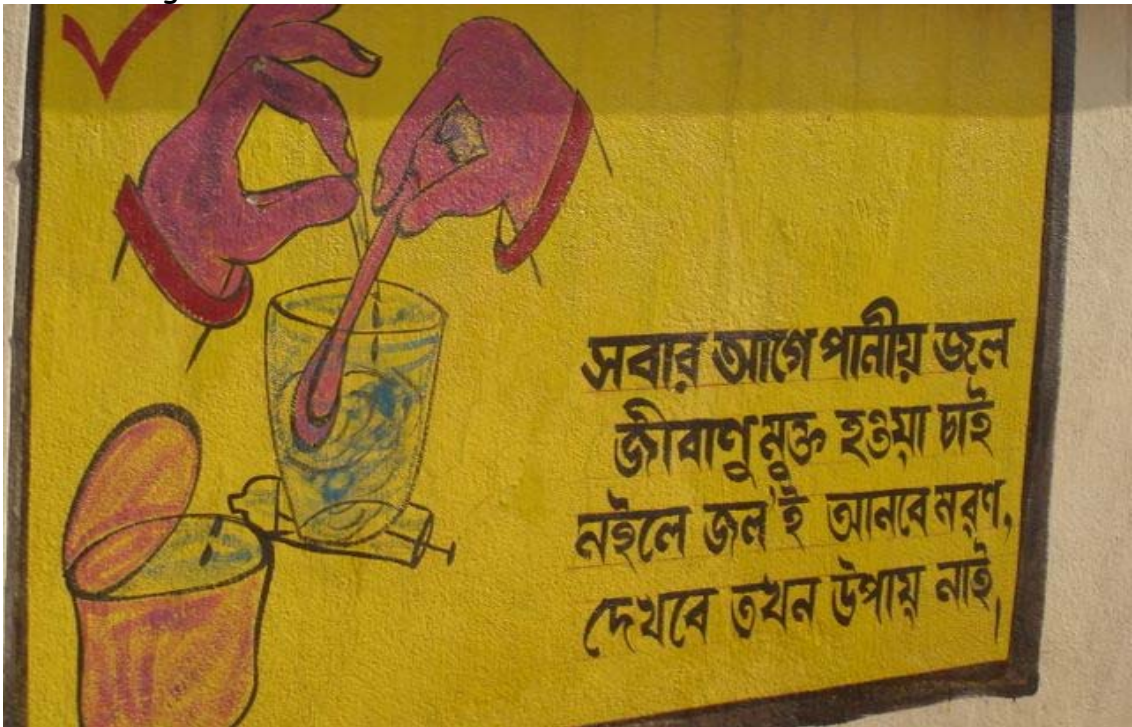 সবার আগে পানীয় জল
জীবাণু মুক্ত হওয়া চাই
নইলে জল'ই আনবে মরণ,
দেখবে তখন উপায় নাই,